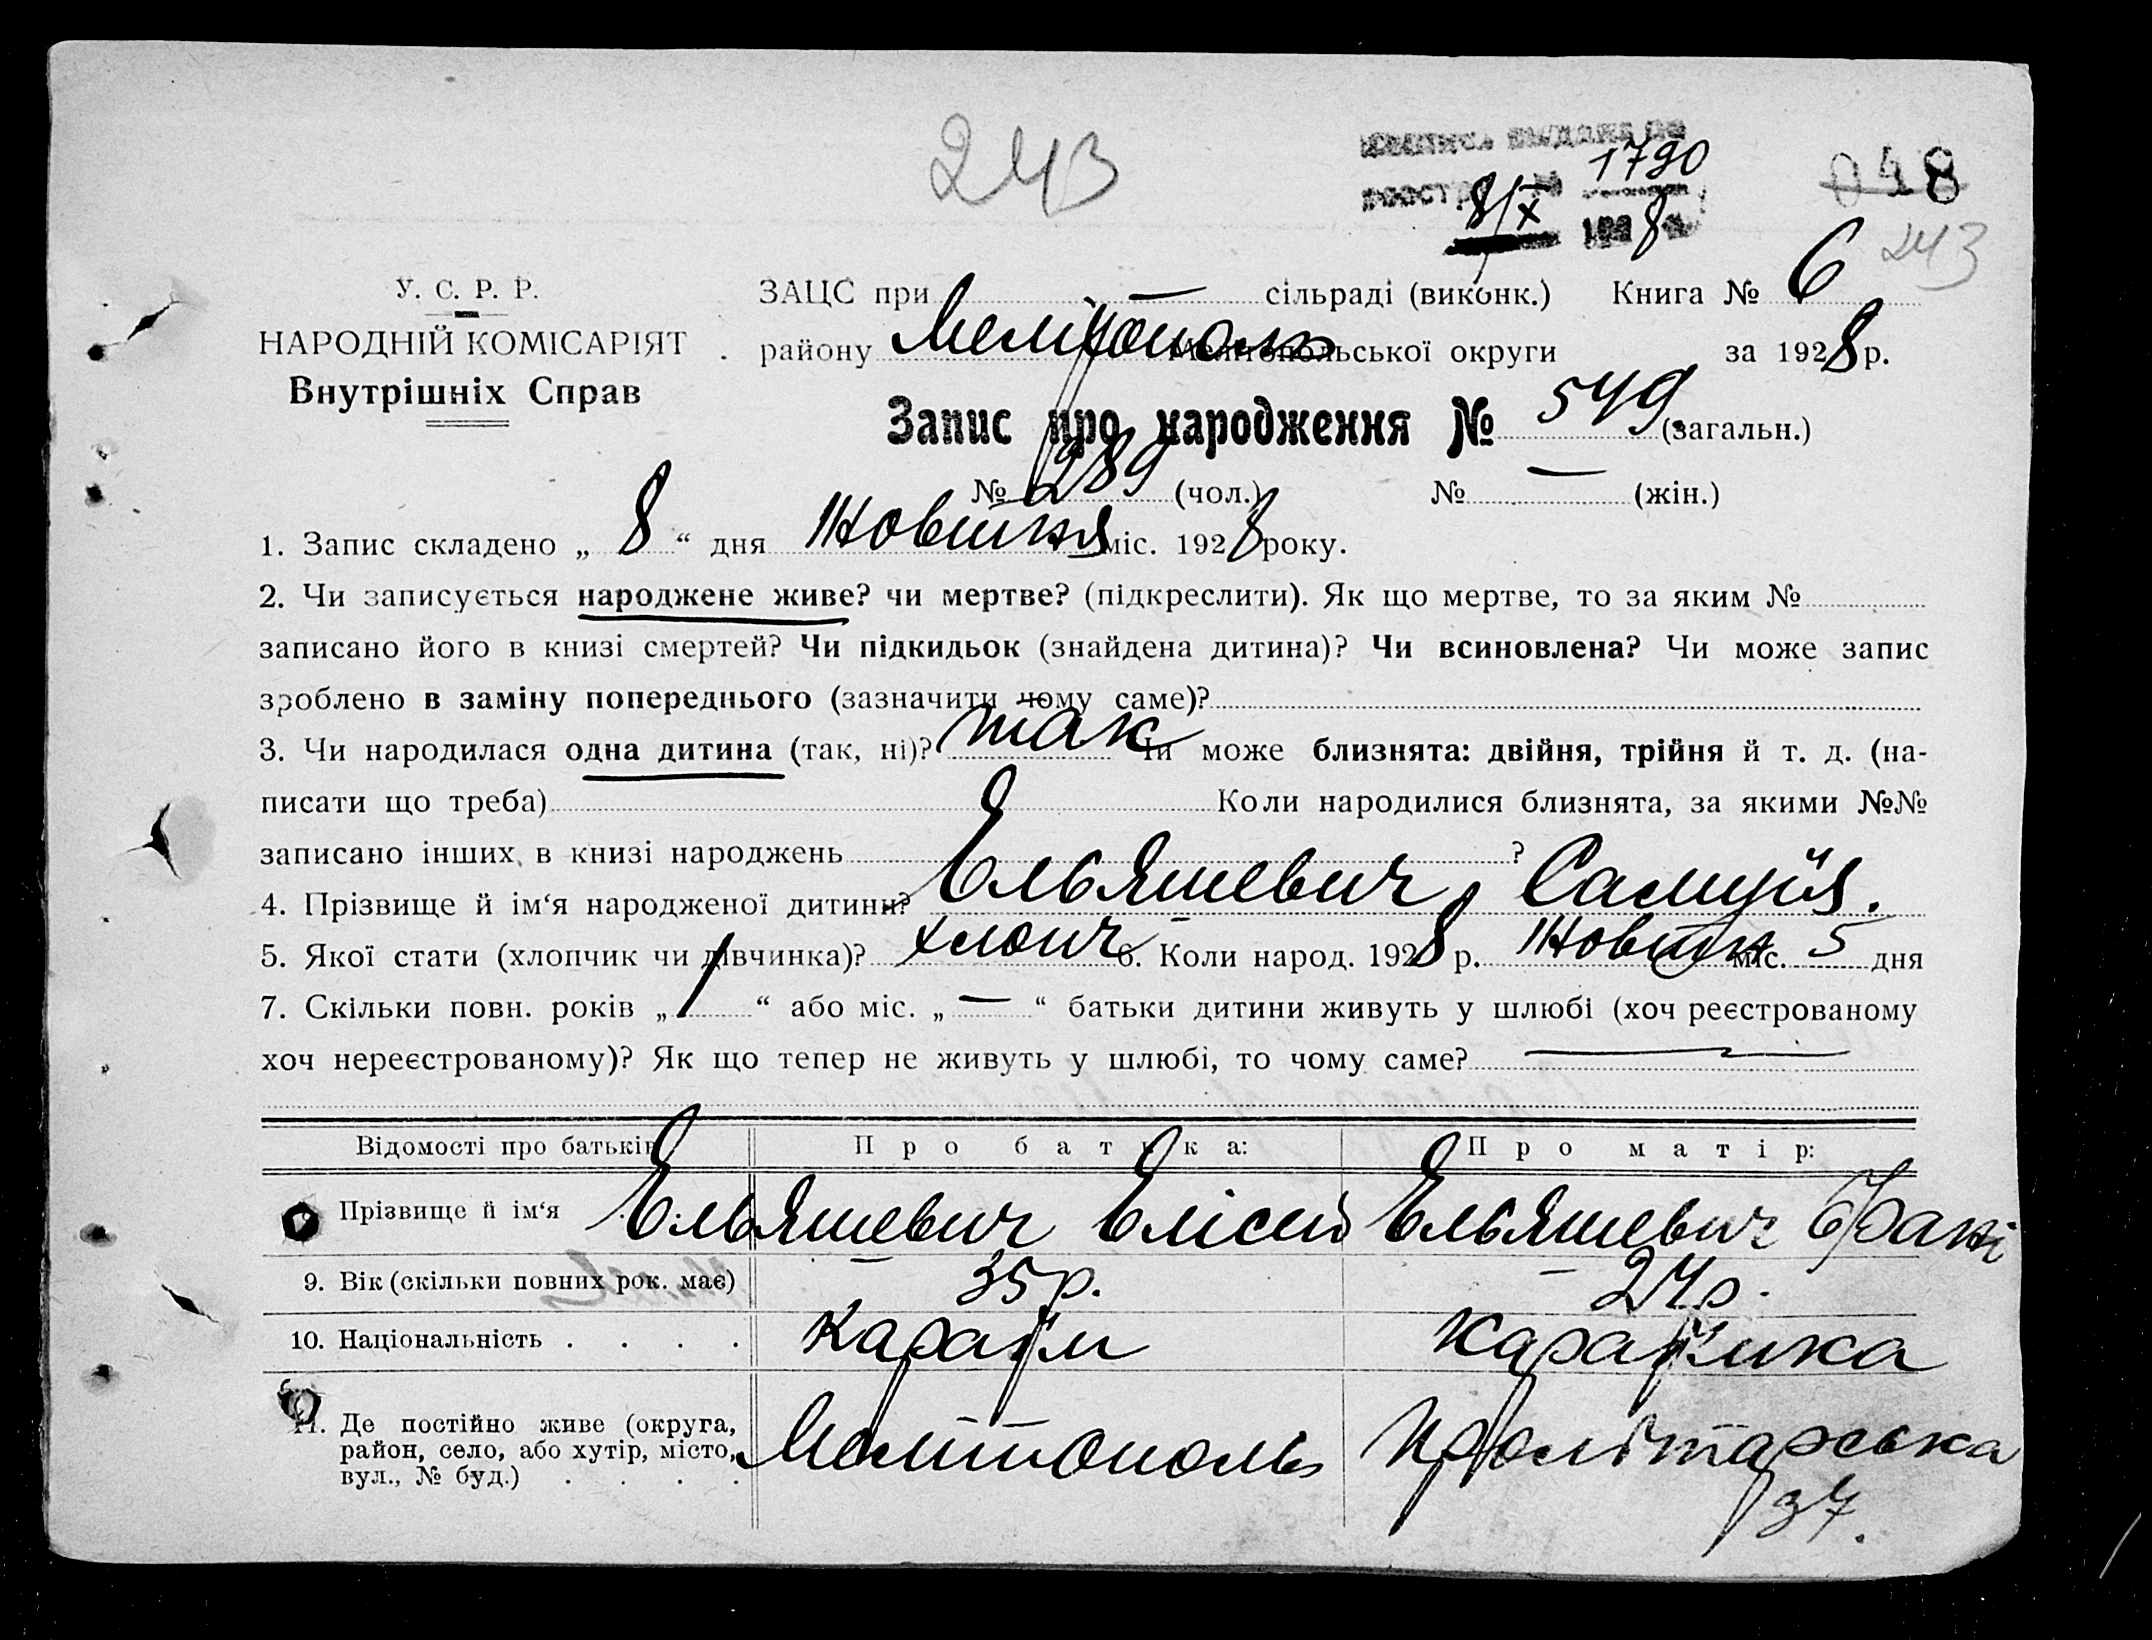 243
1790
8/X 1928
048
243
У. С. Р. Р.
НАРОДНІЙ КОМІСАРІЯТ
Внутрішніх Справ
ЗАЦС при — сільраді (виконк.) Книга № 6
району Мелітополь Мелітопольської округи за 1928 р.
Запис про народження № 549 (загальн.)
№ 289 (чол.) № — (жін.)
1. Запис складено „ 8 “ дня Жовтня міс. 1928 року.
2. Чи записується народжене живе? чи мертве? (підкреслити). Як що мертве, то за яким №
записано його в книзі смертей? Чи підкидьок (знайдена дитина)? Чи всиновлена? Чи може запис
зроблено в заміну попереднього (зазначити чому саме)?
3. Чи народилася одна дитина (так, ні)? так Чи може близнята: двійня, трійня й т. д. (на-
писати що треба) Коли народилися близнята, за якими №№
записано інших в книзі народжень ?
4. Прізвище й ім‘я народженої дитини? Ельяшевич, Самуїл.
5. Якої стати (хлопчик чи дівчинка)? хлопч 6. Коли народ. 1928 р. Жовтн міс. 5 дня
7. Скільки повн. років „ 1 “ або міс. „ — “ батьки дитини живуть у шлюбі (хоч реєстрованому
хоч нереєстрованому)? Як що тепер не живуть у шлюбі, то чому саме? —
Відомості про батьків Про батька: Про матір:
Прізвище й ім‘я Ельяшевич Елісей Ельяшевич
9. Вік (скільки повних рок. має) 35 р. 27 р.
10. Національність . . . . караїм караїмка
11. Де постійно живе (округа,
район, село, або хутір, місто, Мелітополь Пролітарська
вул., № буд.) . . . . 37.